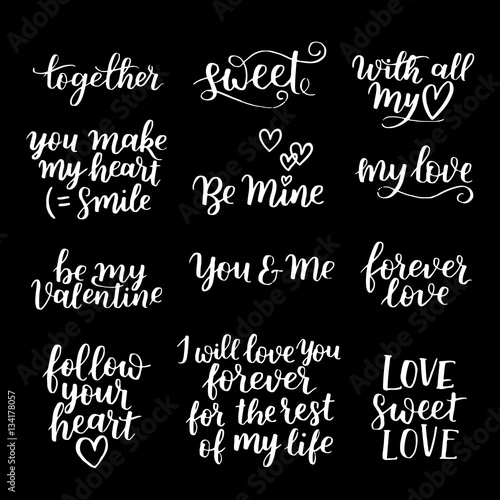 together
sweet
With all
My
you make
my heart
(= Smile
Be Mine
my love
be my
Valentine
You & Me
forever
love
follow
your
heart
I will love you
forever
for the rest
of my life
LOVE
Sweet
LOVE
Adobe Stock | #134178057